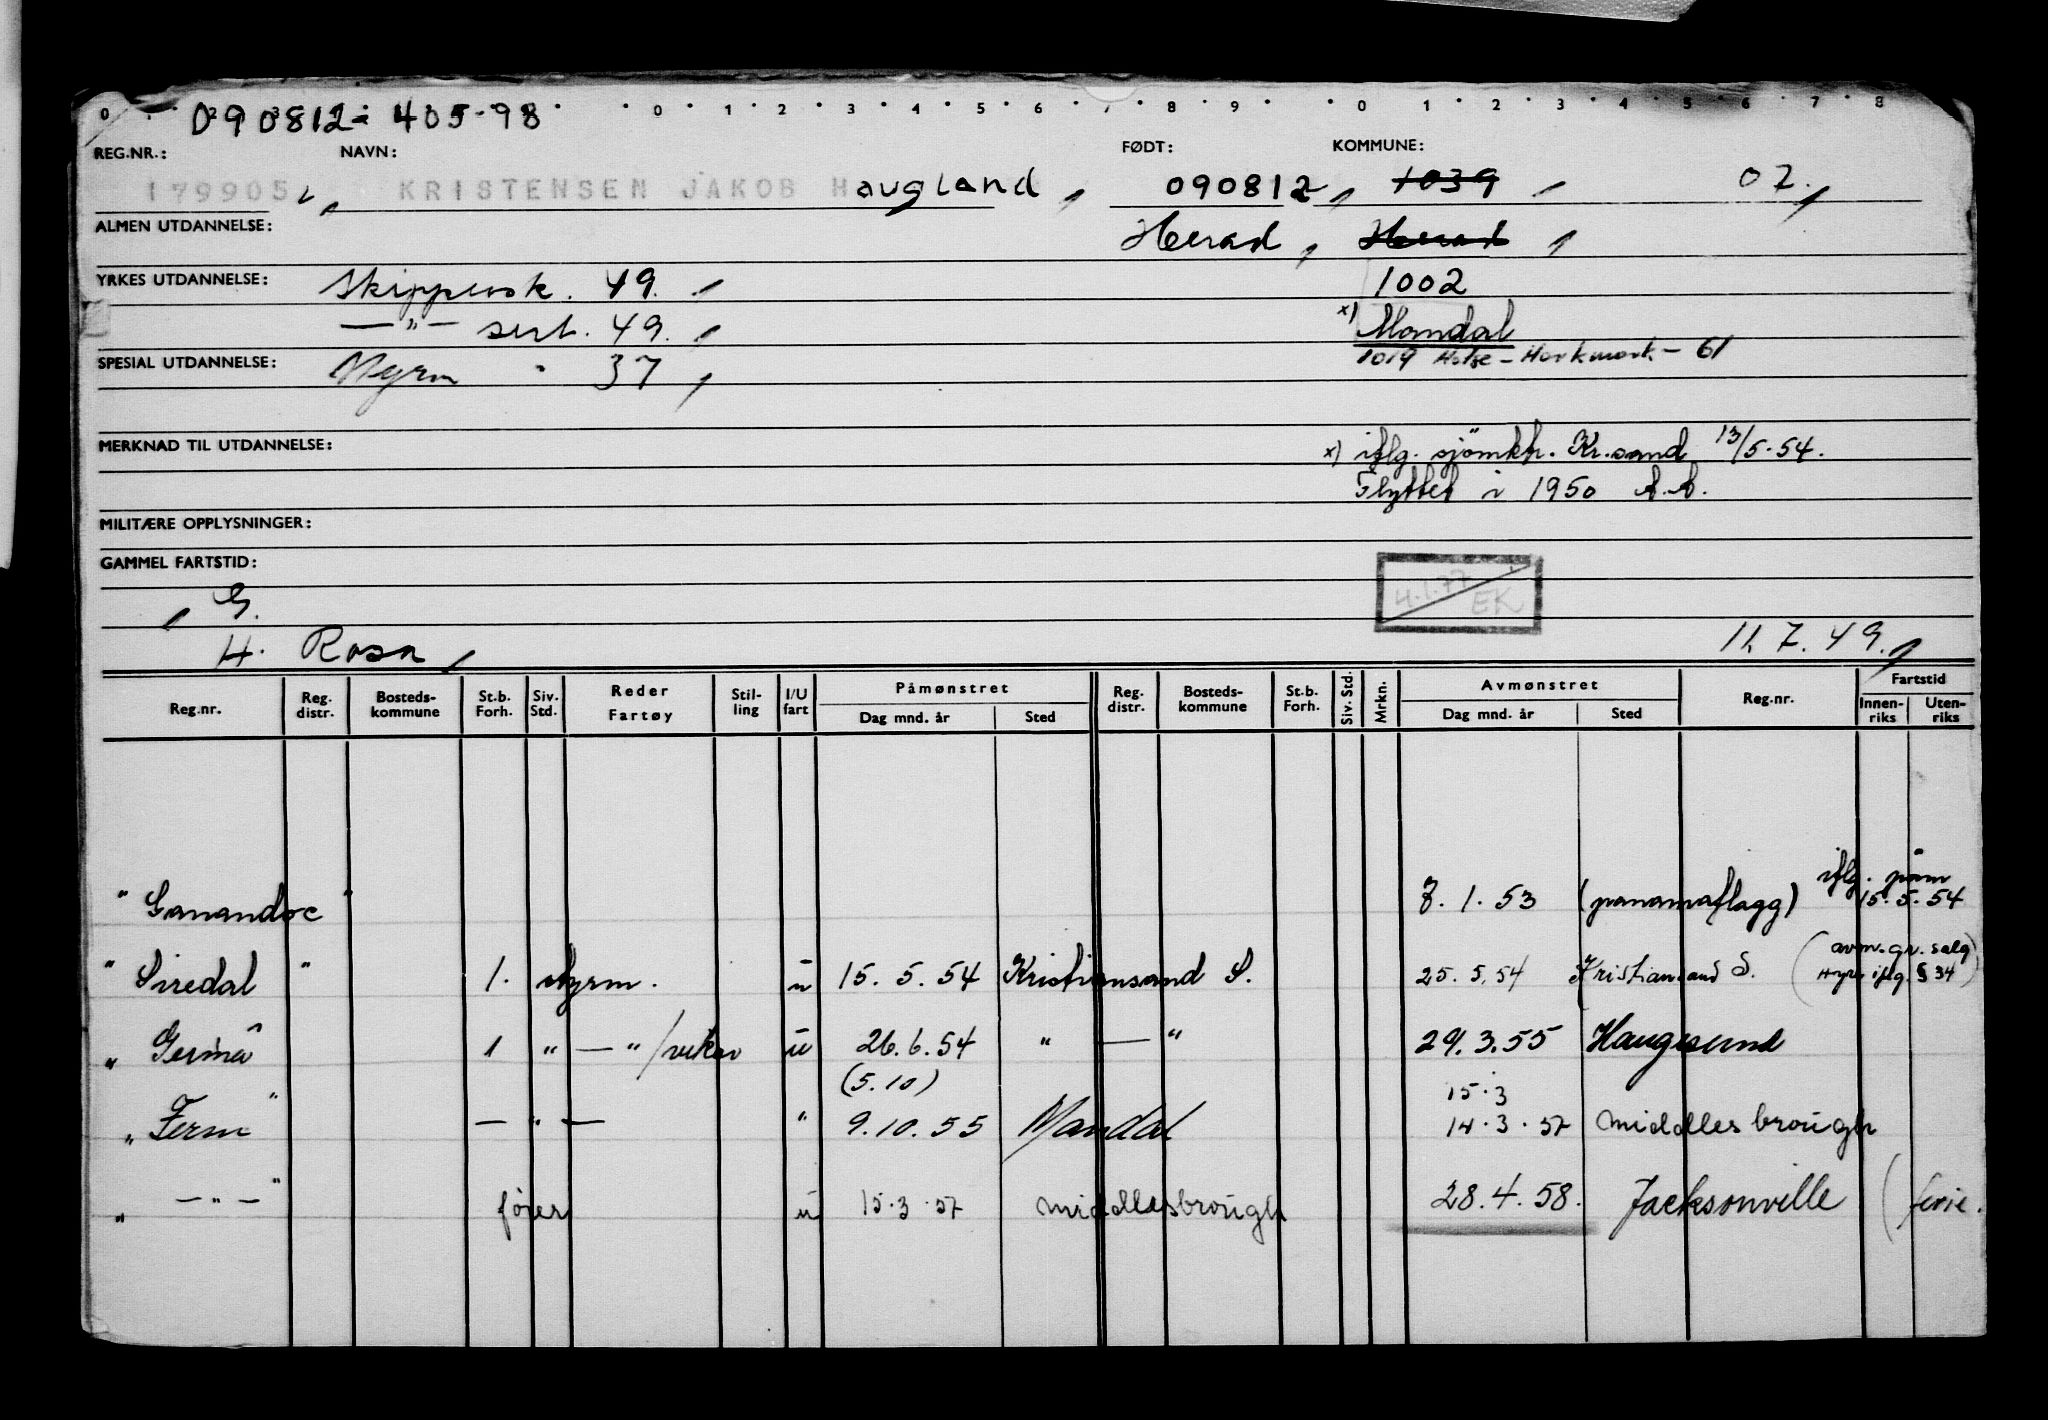 090812-405-98
0 1 2 3 4 5 6 7 8 9 0 1 2 3 4 5 6 7 8
REG.NR.: NAVN: FØDT: KOMMUNE:
179905, KRISTENSEN JAKOB Haugland, 090812, 1039, 07,
ALMEN UTDANNELSE: Herad, Herad,
YRKES UTDANNELSE: Skippersk. 49. 1002
—"— sert. 49. x) Mandal
SPESIAL UTDANNELSE: Styrm " 37, 1019 Halse - Harkmark - 61
MERKNAD TIL UTDANNELSE: x) iflg. sjömktr. Kr.sand 13/5-54.
Flyttet i 1950 A.A.
MILITÆRE OPPLYSNINGER:
GAMMEL FARTSTID:
4.1.77 EK
G.
H. Rosa, 11.7.49.,
Reg.nr. Reg. distr. Bosteds-kommune St.b. Forh. Siv. Std. Reder Fartøy Stil-ling I/U fart Påmønstret Dag mnd. år Sted Reg. distr. Bosteds-kommune St.b. Forh. Siv. Std. Mrkn. Avmønstret Dag mnd. år Sted Reg.nr. Fartstid Innen-riks Uten-riks
iflg. påm
" " 7.1.53 (panamaflagg) 15.5.54
"Siredal" 1. styrm. u 15.5.54 Kristiansand S. 25.5.54 Kristiansand S. (avm. gr. salg
Hyre iflg. § 34)
" Germa" 1 " — " /vikar u 26.6.54 " — " 29.3.55 Haugesund
(5.10) 15.3
"Ferm" — " — " 9.10.55 Mandal 14.3.57 Middlesbrough
" — " — " fører u 15.3.57 Middlesbrough 28.4.58. Jacksonville (ferie.